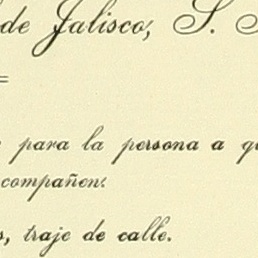 de Jalisco, S.
para la persona a
compañen.
traje de calle.